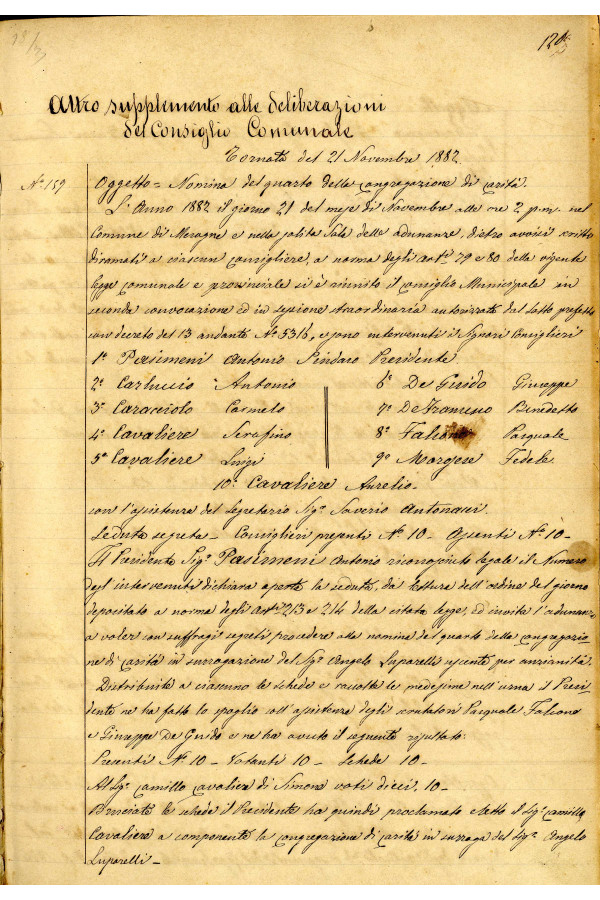 120
Altro supplemento alle deliberazioni
del Consiglio Comunale
Tornata del 21 Novembre 1882.
N.º 159 Oggetto = Nomina del quarto della congregazione di carità.
L'Anno 1882 il giorno 21 del mese di Novembre alle ore 2 p.m. nel
Comune di Mesagne e nella solita Sala delle adunanze, dietro avvisi scritti
diramati a ciascun consigliere, a norma degli art.li 79 e 80 della vigente
legge comunale e provinciale si è riunito il consiglio Municipale in
seconda convocazione ed in sessione straordinaria autorizzata dal Sotto prefetto
con decreto del 13 andante N.º 5316, e sono intervenuti i Signori Consiglieri
1º Pasimeni Antonio Sindaco Presidente
2º Carluccio Antonio 6º De Guido Giuseppe
3º Caracciolo Carmelo 7º De Francesco Benedetto
4º Cavaliere Serafino 8º Falcone Pasquale
5º Cavaliere Luigi 9º Morgese Fedele
10º Cavaliere Aurelio.
con l'assistenza del Segretario Sig.r Saverio Antonucci.
Seduta segreta – Consiglieri presenti N.º 10 – Assenti N.º 10 –
Il Presidente Sig.r Pasimeni Antonio riconosciuto legale il Numero
degl'intervenuti dichiara aperta la seduta, dà lettura dell'ordine del giorno
depositato a norma degli art.li 213 e 214 della citata legge, ed invita l'adunanza
a voler con suffragi segreti procedere alla nomina del quarto della congregazio
ne di carità in surrogazione del Sig.r Angelo Luparelli uscente per anzianità.
Distribuite a ciascuno le schede e raccolte le medesime nell'urna il Presi
dente ne ha fatto lo spoglio coll'assistenza degli scrutatori Pasquale Falcone
e Giuseppe De Guido e ne ha avuto il seguente risultato:
Presenti N.º 10 – Votanti 10 – Schede 10 –
Al Sig.r Camillo Cavaliere di Simone voti dieci. 10 –
Bruciate le schede il Presidente ha quindi proclamato eletto il Sig.r Camillo
Cavaliere a componente la congregazione di carità in surroga del Sig.r Angelo
Luparelli –